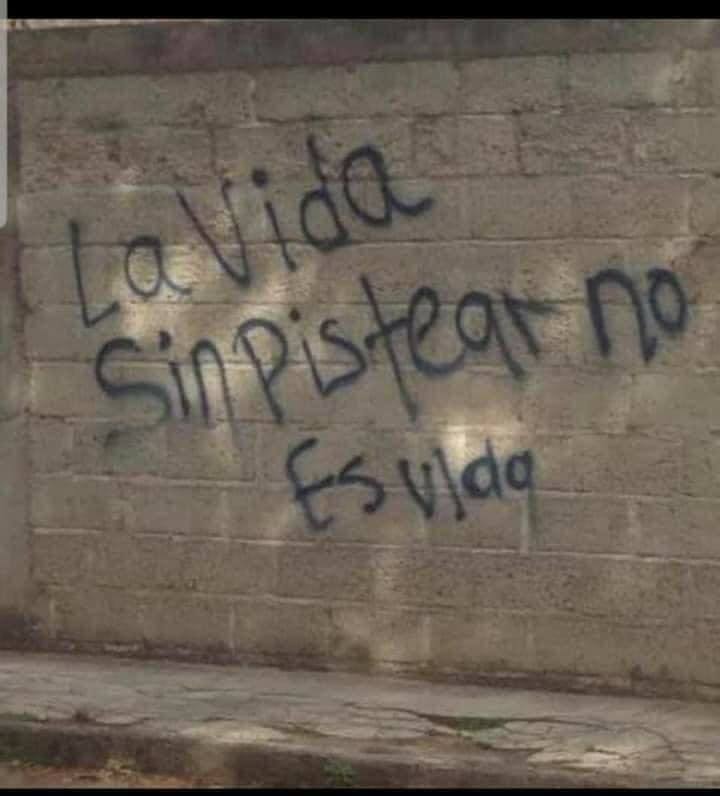 La Vida
Sin Pistear no
Es vida